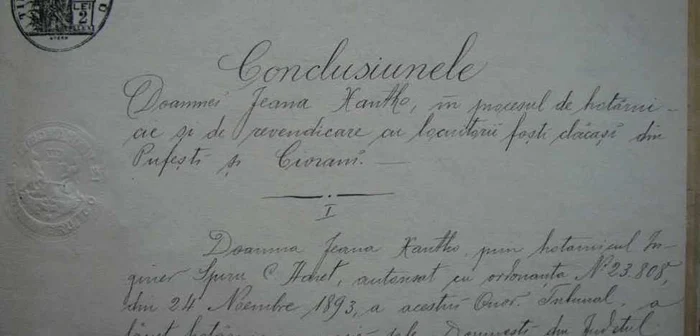 LEI
2
Conclusiunele
Doamnei Jeana Xantho, în procesul de hotărni-
cie și de revendicare cu locuitorii foști clăcași din
Pufești și Ciorani. —
I
Doamna Jeana Xantho, prin hotarnicul In-
giner Spiru C. Haret, autorisat cu ordonanța N° 23.808,
din 24 Noembre 1893, a acestui Onor. Tribunal, a
făcut Domnești din Județul